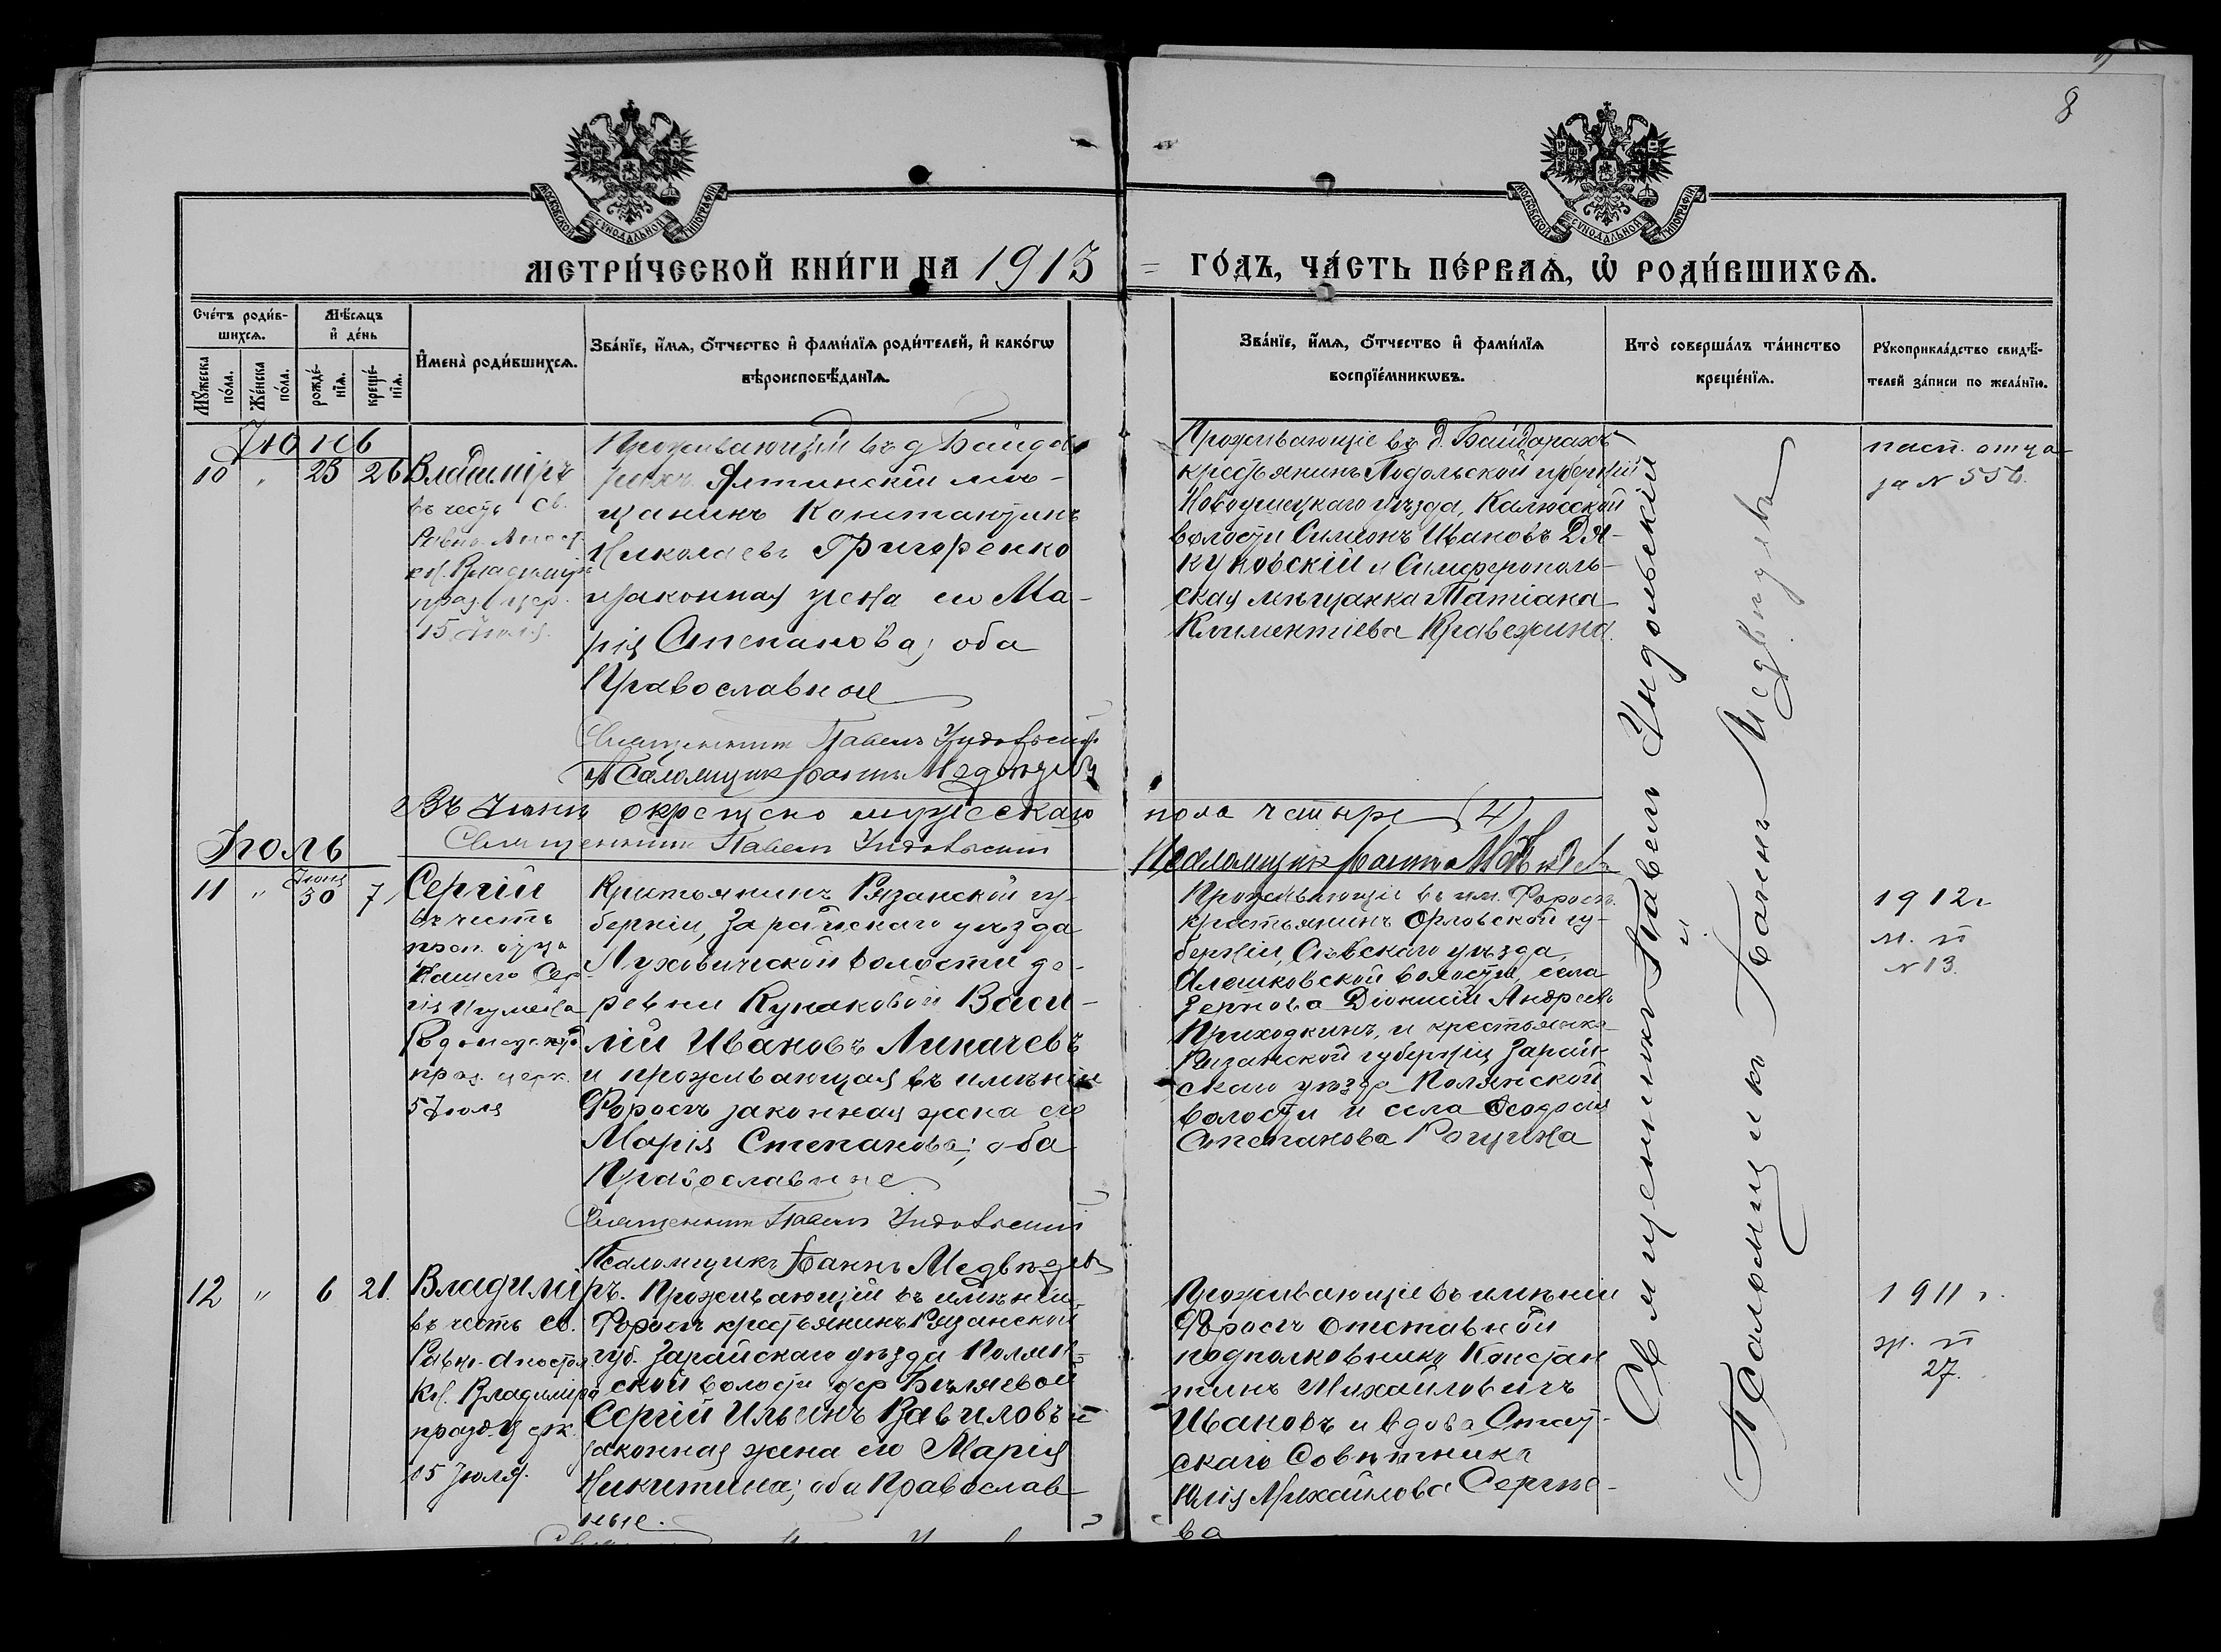 8
МОСКОВСКОЙ СѴНОДАЛЬНОЙ ТИПОГРАФІИ
МОСКОВСКОЙ СѴНОДАЛЬНОЙ ТИПОГРАФІИ
МЕТРИ́ЧЕСКОЙ КНИ́ГИ НА 1913
ГО́ДЪ, ЧА́СТЬ ПЕ́РВАѦ, Ѡ҆ РОДИ́ВШИХСѦ.
Сче́тъ роди́в-
шихсѧ.
Мꙋ́жеска
по́ла.
Же́нска
по́ла.
Мѣ́сѧцъ
и҆ де́нь
рожде́-
нїѧ.
креще́-
нїѧ.
И҆мена̀ роди́вшихсѧ.
Зва́нїе, и҆́мѧ, ѻ҆́тчество и҆ фами́лїѧ роди́телей, и҆ како́гѡ
вѣроисповѣ́данїѧ.
Зва́нїе, и҆́мѧ, ѻ҆́тчество и҆ фами́лїѧ
воспрїе́мникѡвъ.
Кто̀ соверша́лъ та́инство
креще́нїѧ.
Рꙋкоприкла́дство свидѣ́-
телей за́писи по жела́нїю.
Іюнь
10 " 25 26
Владиміръ
въ честь Св.
Равно-Апост.
кн. Владиміра
празд. цер.
15 Іюля.
Проживающій въ д Байда-
рахъ Ялтинскій мѣ-
щанинъ Константинъ
Николаевъ Григоренко
и законная жена его Ма-
рія Степанова; оба
Православные
Священникъ Павелъ Ундольскій
Псаломщикъ Іоаннъ Медвѣдевъ
Проживающіе въ д. Байдарахъ
крестьянинъ Подольской губерніи
Новоушицкаго уѣзда, Калюсской
волости Симеонъ Ивановъ Дя-
куновскій и Симферополь-
ская мѣщанка Татіана
Климентіева Кравежина.
пасп. отца
за N 556.
Въ Іюнѣ окрещено мужескаго пола четыре (4)
Священникъ Павелъ Ундольскій
Псаломщикъ Іоаннъ Медвѣдевъ
Іюль
11 " Іюня 30 7
Сергій
въ честь
преп. отца
нашего Сер-
гія Игумена
Радонежскаго
праз. церк.
5 Іюля
Крестьянинъ Рязанской гу-
берніи, Зарайскаго уѣзда
Луховической волости де-
ревни Кунаковой Васи-
лій Ивановъ Липачевъ
и проживающая въ имѣніи
Форосъ законная жена его
Марія Степанова; оба
Православные
Священникъ Павелъ Ундольскій
Псаломщикъ Іоаннъ Медвѣдевъ
Проживающіе въ им. Форосъ
крестьянинъ Орловской гу-
берніи, Сѣвскаго уѣзда,
волости, села
Зернова Діонисій Андреевъ
Приходкинъ, и крестьянка
Рязанской губерніи, Зарай-
скаго уѣзда Полянской
волости и села Ѳеодосія
Степанова Рогужина
1912 г
м. п
N 13.
12 " 6 21.
Владиміръ.
въ честь св.
Равно-Апостол.
Кн. Владиміра
празд. Церк.
15 Іюля.
Проживающій въ имѣніи
Форосъ крестьянинъ Рязанской
губ. Зарайскаго уѣзда Полян-
ской волости дер Бѣляевой
Сергій Ильинъ Вавиловъ и
законная жена его Марія
Никитина; оба Православ-
ные.
Проживающіе въ имѣніи
Форосъ Отставной
подполковникъ Констан
тинъ Михайловичъ
Ивановъ и вдова Стат-
скаго Совѣтника
Юлія Михайлова Сергѣе-
ва
1911 г.
ж. п
27.
Священникъ Павелъ Ундольскій
и
Псаломщикъ Іоаннъ Медвѣдевъ